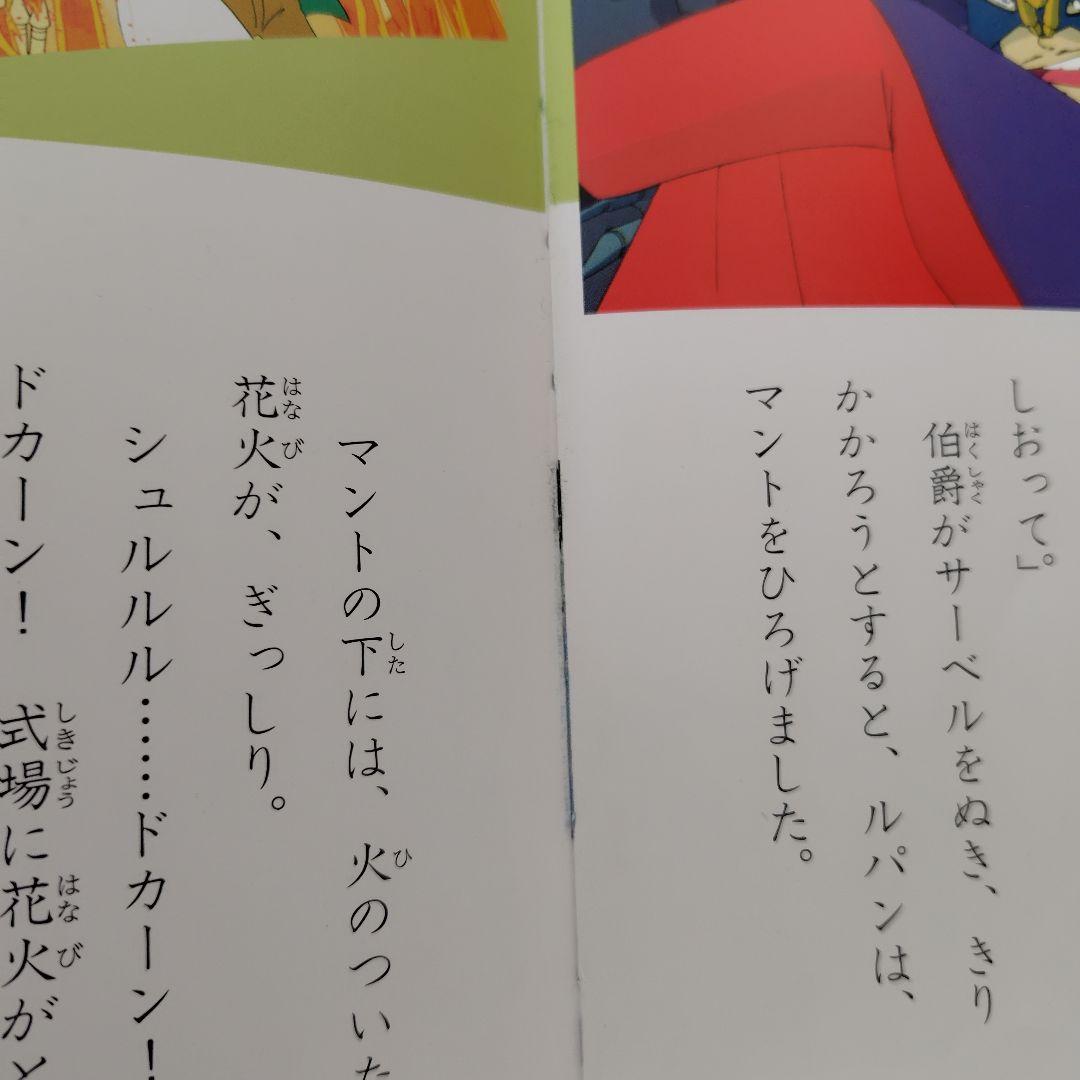 しおって」。
伯爵がサーベルをぬき、きり
かかろうとすると、ルパンは、
マントをひろげました。
マントの下には、火のついた
花火が、ぎっしり。
シュルルル………ドカーン！
ドカーン！ 式場に花火がと